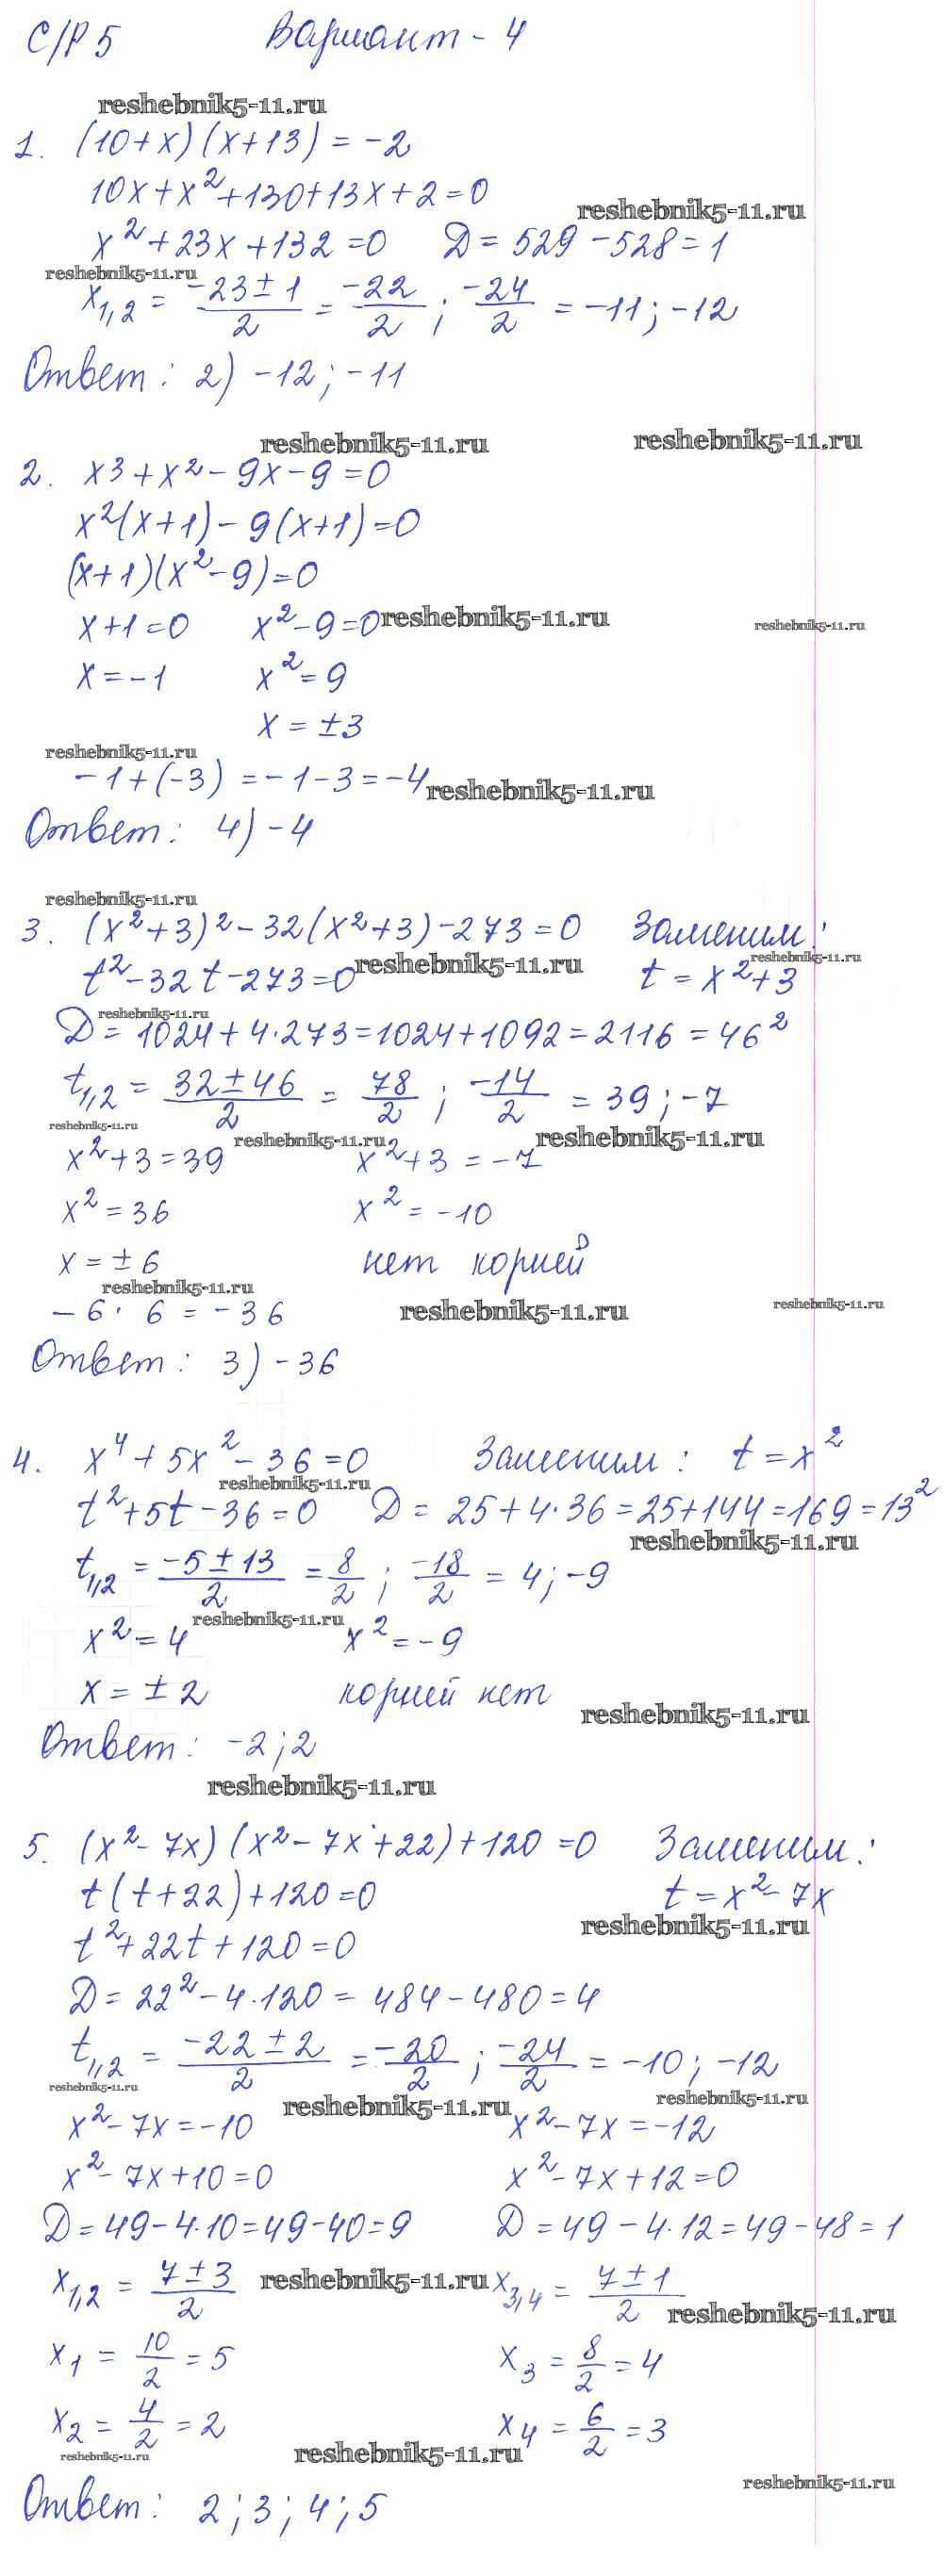 С/Р 5 Вариант - 4
reshebnik5-11.ru
1. (10+x)(x+13) = -2
10x+x²+130+13x+2=0
reshebnik5-11.ru
x²+23x+132=0 D = 529-528=1
reshebnik5-11.ru
x₁,₂ = (-23±1)/2 = -22/2 ; -24/2 = -11; -12
Ответ: 2) -12; -11
reshebnik5-11.ru reshebnik5-11.ru
2. x3+x²-9x-9=0
x²(x+1)-9(x+1)=0
(x+1)(x²-9)=0
x+1=0 x²-9=0 reshebnik5-11.ru reshebnik5-11.ru
x=-1 x²=9
x=±3
reshebnik5-11.ru
-1+(-3) = -1-3=-4 reshebnik5-11.ru
Ответ: 4) -4
reshebnik5-11.ru
3. (x²+3)²-32(x²+3)-273=0 Заменим:
t²-32t-273=0 reshebnik5-11.ru t=x²+3 reshebnik5-11.ru
reshebnik5-11.ru
D=1024+4·273=1024+1092=2116=46²
t₁,₂ = (32±46)/2 = 78/2 ; -14/2 = 39; -7
reshebnik5-11.ru reshebnik5-11.ru reshebnik5-11.ru
x²+3=39 x²+3=-7
x²=36 x²=-10
x=±6 нет корней
reshebnik5-11.ru
-6·6=-36 reshebnik5-11.ru reshebnik5-11.ru
Ответ: 3) -36
4. x⁴+5x²-36=0 Заменим: t=x²
reshebnik5-11.ru
t²+5t-36=0 D=25+4·36=25+144=169=13²
reshebnik5-11.ru
t₁,₂ = (-5±13)/2 = 8/2 ; -18/2 = 4; -9
reshebnik5-11.ru
x²=4 x²=-9
x=±2 корней нет
reshebnik5-11.ru
Ответ: -2; 2
reshebnik5-11.ru
5. (x²-7x)(x²-7x+22)+120=0 Заменим:
t(t+22)+120=0 t=x²-7x
reshebnik5-11.ru
t²+22t+120=0
D=22²-4·120=484-480=4
t₁,₂ = (-22±2)/2 = -20/2 ; -24/2 = -10; -12
reshebnik5-11.ru reshebnik5-11.ru reshebnik5-11.ru
x²-7x=-10 x²-7x=-12
x²-7x+10=0 x²-7x+12=0
D=49-4·10=49-40=9 D=49-4·12=49-48=1
x₁,₂ = (7±3)/2 reshebnik5-11.ru x₃,₄ = (7±1)/2
reshebnik5-11.ru
x₁ = 10/2 = 5 x₃ = 8/2 = 4
x₂ = 4/2 = 2 x₄ = 6/2 = 3
reshebnik5-11.ru reshebnik5-11.ru
reshebnik5-11.ru
Ответ: 2; 3; 4; 5